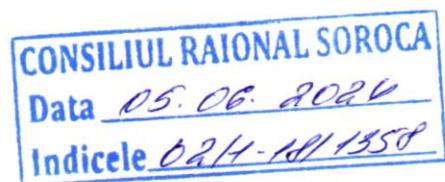 CONSILIUL RAIONAL SOROCA
Data 05.06.2024
Indicele 02/1-18/1358